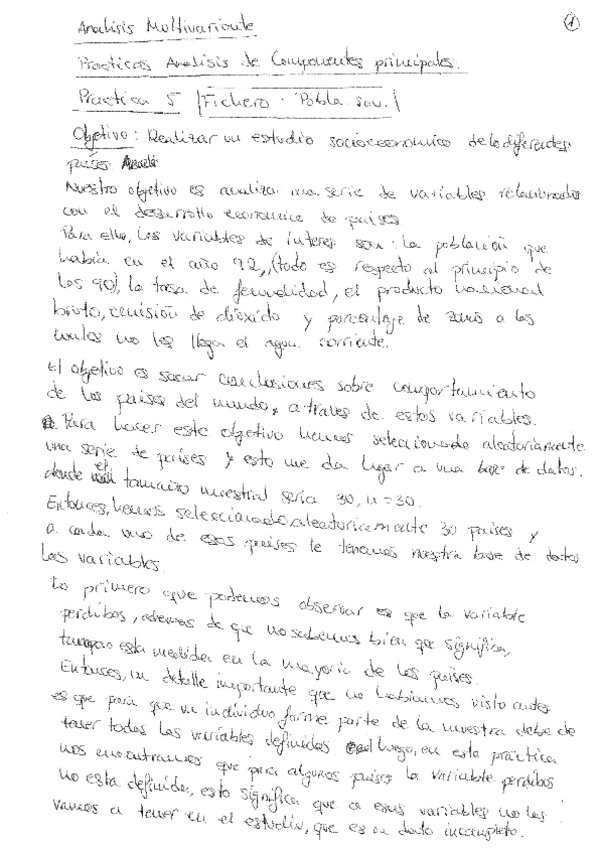 Analisis Multivariante
1
Practicas Analisis de Componentes principales.
Practica 5 |Fichero: Pobla.sav.|
Objetivo: Realizar un estudio socioeconomico de lo diferentes
países
Nuestro objetivo es analizar una serie de variables relacionadas
con el desarrollo economico de países.
Para ello, las variables de interes son: la población que
había en el año 92, (todo es respecto al principio de
los 90), la tasa de fecundidad, el producto nacional
bruto, emisión de dióxido y porcentaje de zonas a las
cuales no les llega el agua corriente.
El objetivo es sacar conclusiones sobre comportamiento
de los países del mundo, a traves de estos variables.
Para hacer este objetivo hemos seleccionado aleatoriamente
una serie de países y esto me da lugar a una base de datos.
donde el tamaño muestral seria 30, n=30.
Entonces, hemos seleccionado aleatoriamente 30 países y
a cada uno de esos países le tenemos nuestra base de datos
las variables.
Lo primero que podemos observar es que la variable
perdibos, ademas de que no sabemos bien que significa,
tampoco esta medida en la mayoría de los países.
Entonces, un detalle importante que no habíamos visto antes
es que para que un individuo forme parte de la muestra debe de
tener todas las variables definidas luego, en esta práctica
nos encontramos que para algunos países la variable perdibos
no esta definida, esto significa que a esas variables no las
vamos a tener en el estudio, que es un dato incompleto.